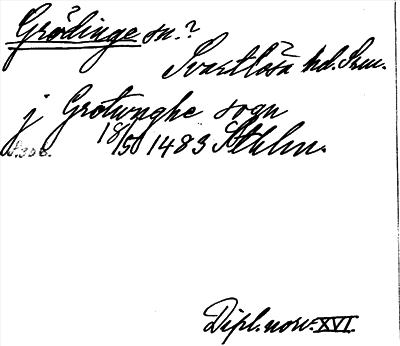 Grödinge sn.?
Svartlösa hd. Srm.
j Grotunghe sogn
18/50 1483 Sthlm.
Dipl. norv. XVI.